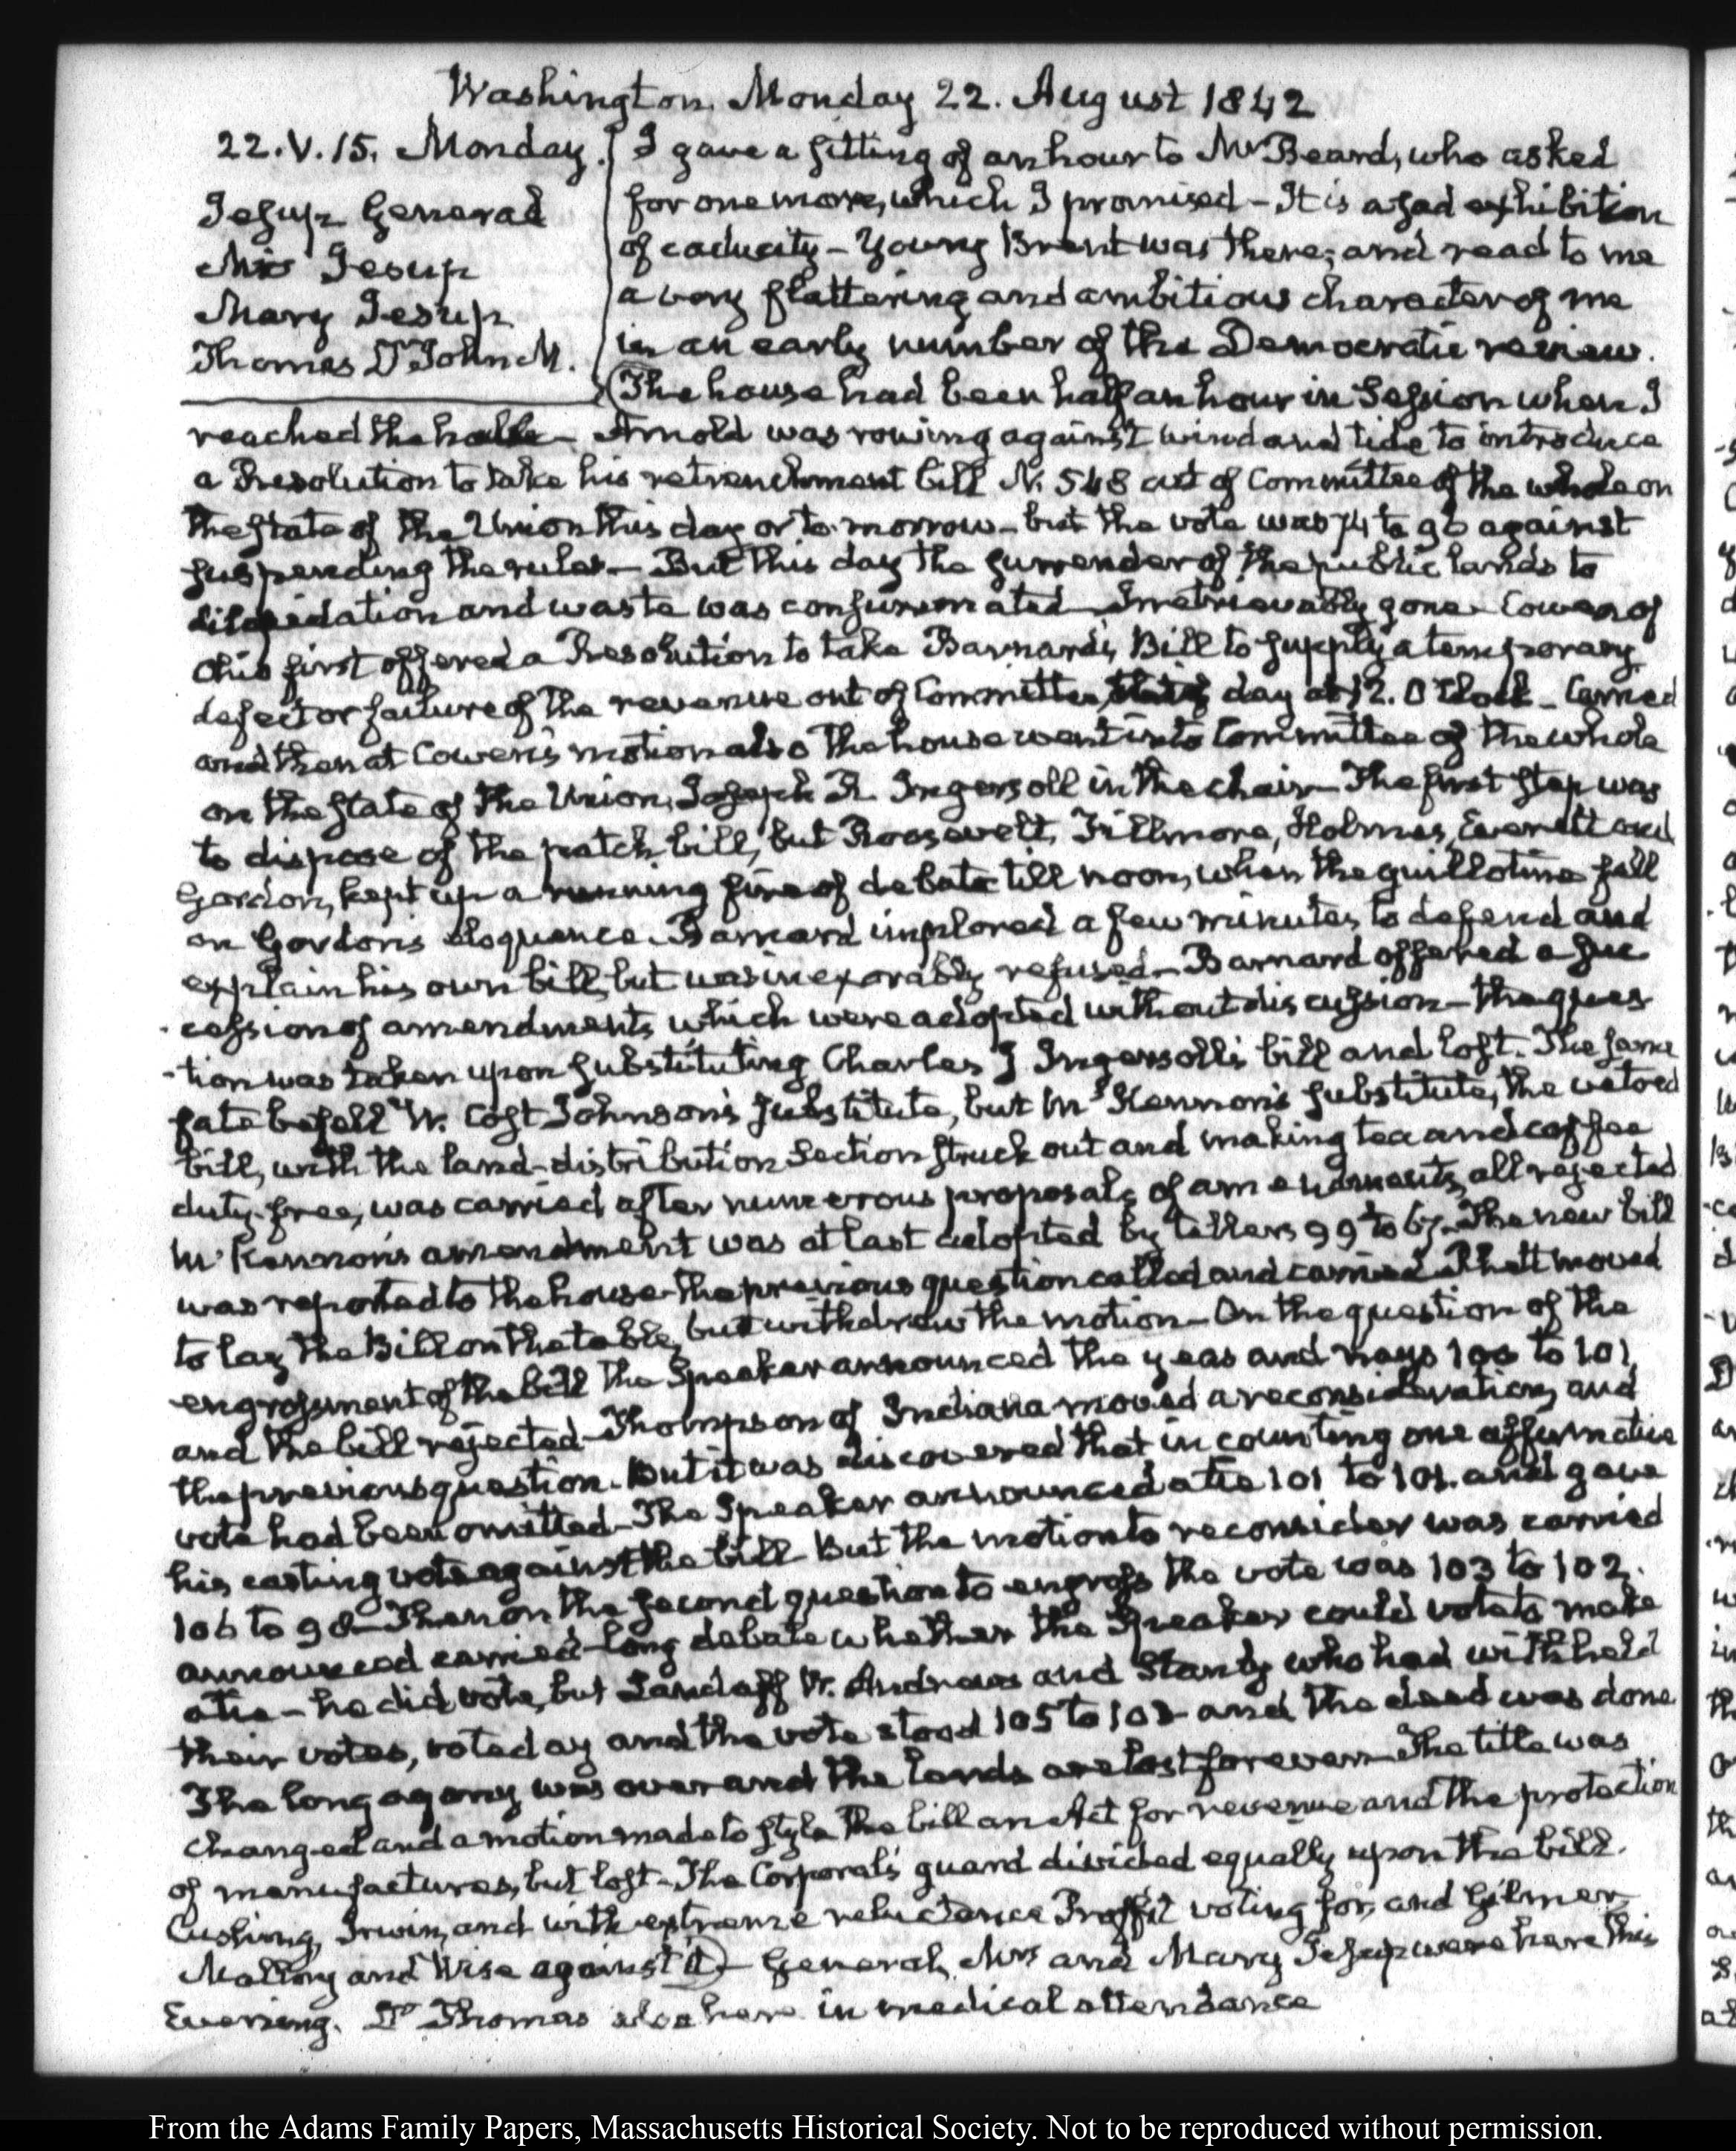 Washington Monday 22. August 1842
22.V.15. Monday.
Jesup General
Mrs Jesup
Mary Jesup
Thomas Dr John M.
I gave a sitting of an hour to Mr Beard, who asked
for one more, which I promised - It is a sad exhibition
of caducity - Young Brent was there; and read to me
a very flattering and ambitious character of me
in an early number of the Democratic review.
The house had been half an hour in Session when I
reached the hall - Arnold was rowing against wind and tide to introduce
a Resolution to take his retrenchment bill N. 548 out of Committee of the whole on
the state of the Union this day or to-morrow - but the vote was 74 to 96 against
suspending the rules - But this day the surrender of the public lands to
dilapidation and waste was consummated - Irretrievably gone - Cowen of
Ohio first offered a Resolution to take Barnard's Bill to supply a temporary
defect or failure of the revenue out of Committee, this day at 12. O'Clock - Carried
and then at Cowen's motion also the house went into Committee of the whole
on the state of the Union, Joseph R. Ingersoll in the chair - The first step was
to dispose of the patch bill, but Roosevelt, Fillmore, Holmes, Everett and
Gordon, kept up a running fire of debate till noon, when the guillotine fell
on Gordon's eloquence. Barnard implored a few minutes to defend and
explain his own bill, but was inexorably refused - Barnard offered a suc
-cession of amendments which were adopted without discussion - the ques
-tion was taken upon substituting Charles J Ingersoll's bill and lost. The same
fate befell W. Cost Johnson's substitute, but McKennon's substitute, the vetoed
bill, with the land-distribution Section struck out and making tea and coffee
duty-free, was carried after numerous proposals of amendments, all rejected
McKennon's amendment was at last adopted by tellers 99 to 67. The new bill
was reported to the house - the previous question called and carried - Rhett moved
to lay the Bill on the table, but withdrew the motion - On the question of the
engrossment of the bill the Speaker announced the yeas and nays 100 to 101,
and the bill rejected - Thompson of Indiana moved a reconsideration, and
the previous question. But it was discovered that in counting one affirmative
vote had been omitted - The Speaker announced a tie 101 to 101. and gave
his casting vote against the bill - But the motion to reconsider was carried
106 to 98 - Then on the second question to engross the vote was 103 to 102.
announced carried - long debate whether the Speaker could vote to make
a tie - he did vote, but Landaff W. Andrews and Stanly who had withheld
their votes, voted ay and the vote stood 105 to 103 - and the deed was done
The long agony was over and the lands are lost forever - The title was
changed and a motion made to style the bill an Act for revenue and the protection
of manufactures, but lost - The Corporal's guard divided equally upon the bill.
Cushing, Irwin, and with extreme reluctance Proffit voting for, and Gilmer,
Mallory and Wise against it - General, Mrs and Mary Jesup were here this
Evening. Dr Thomas also here in medical attendance
From the Adams Family Papers, Massachusetts Historical Society. Not to be reproduced without permission.